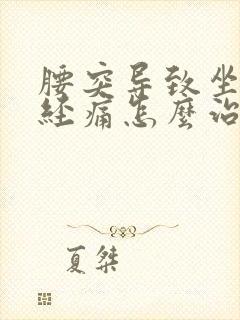 腰突导致坐
经痛怎麼治
夏桀